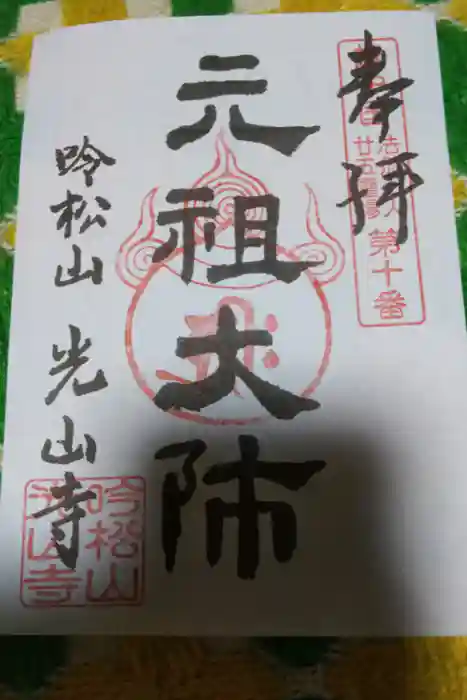 奉拝
第十番
元祖大師
吟松山 光山寺
吟松山
光山寺